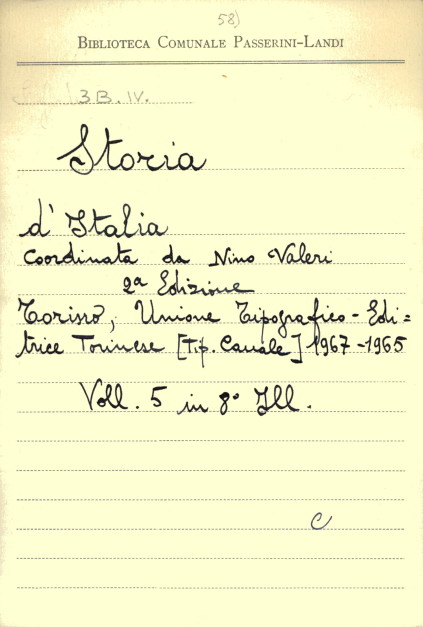 58)
BIBLIOTECA COMUNALE PASSERINI-LANDI
3B.IV.
Storia
d'Italia
Coordinata da Nino Valeri
2a Edizione
Torino, Unione Tipografico-Edi=
trice Torinese [Tip. Canale] 1967-1965
Voll. 5 in 8° Ill.
C